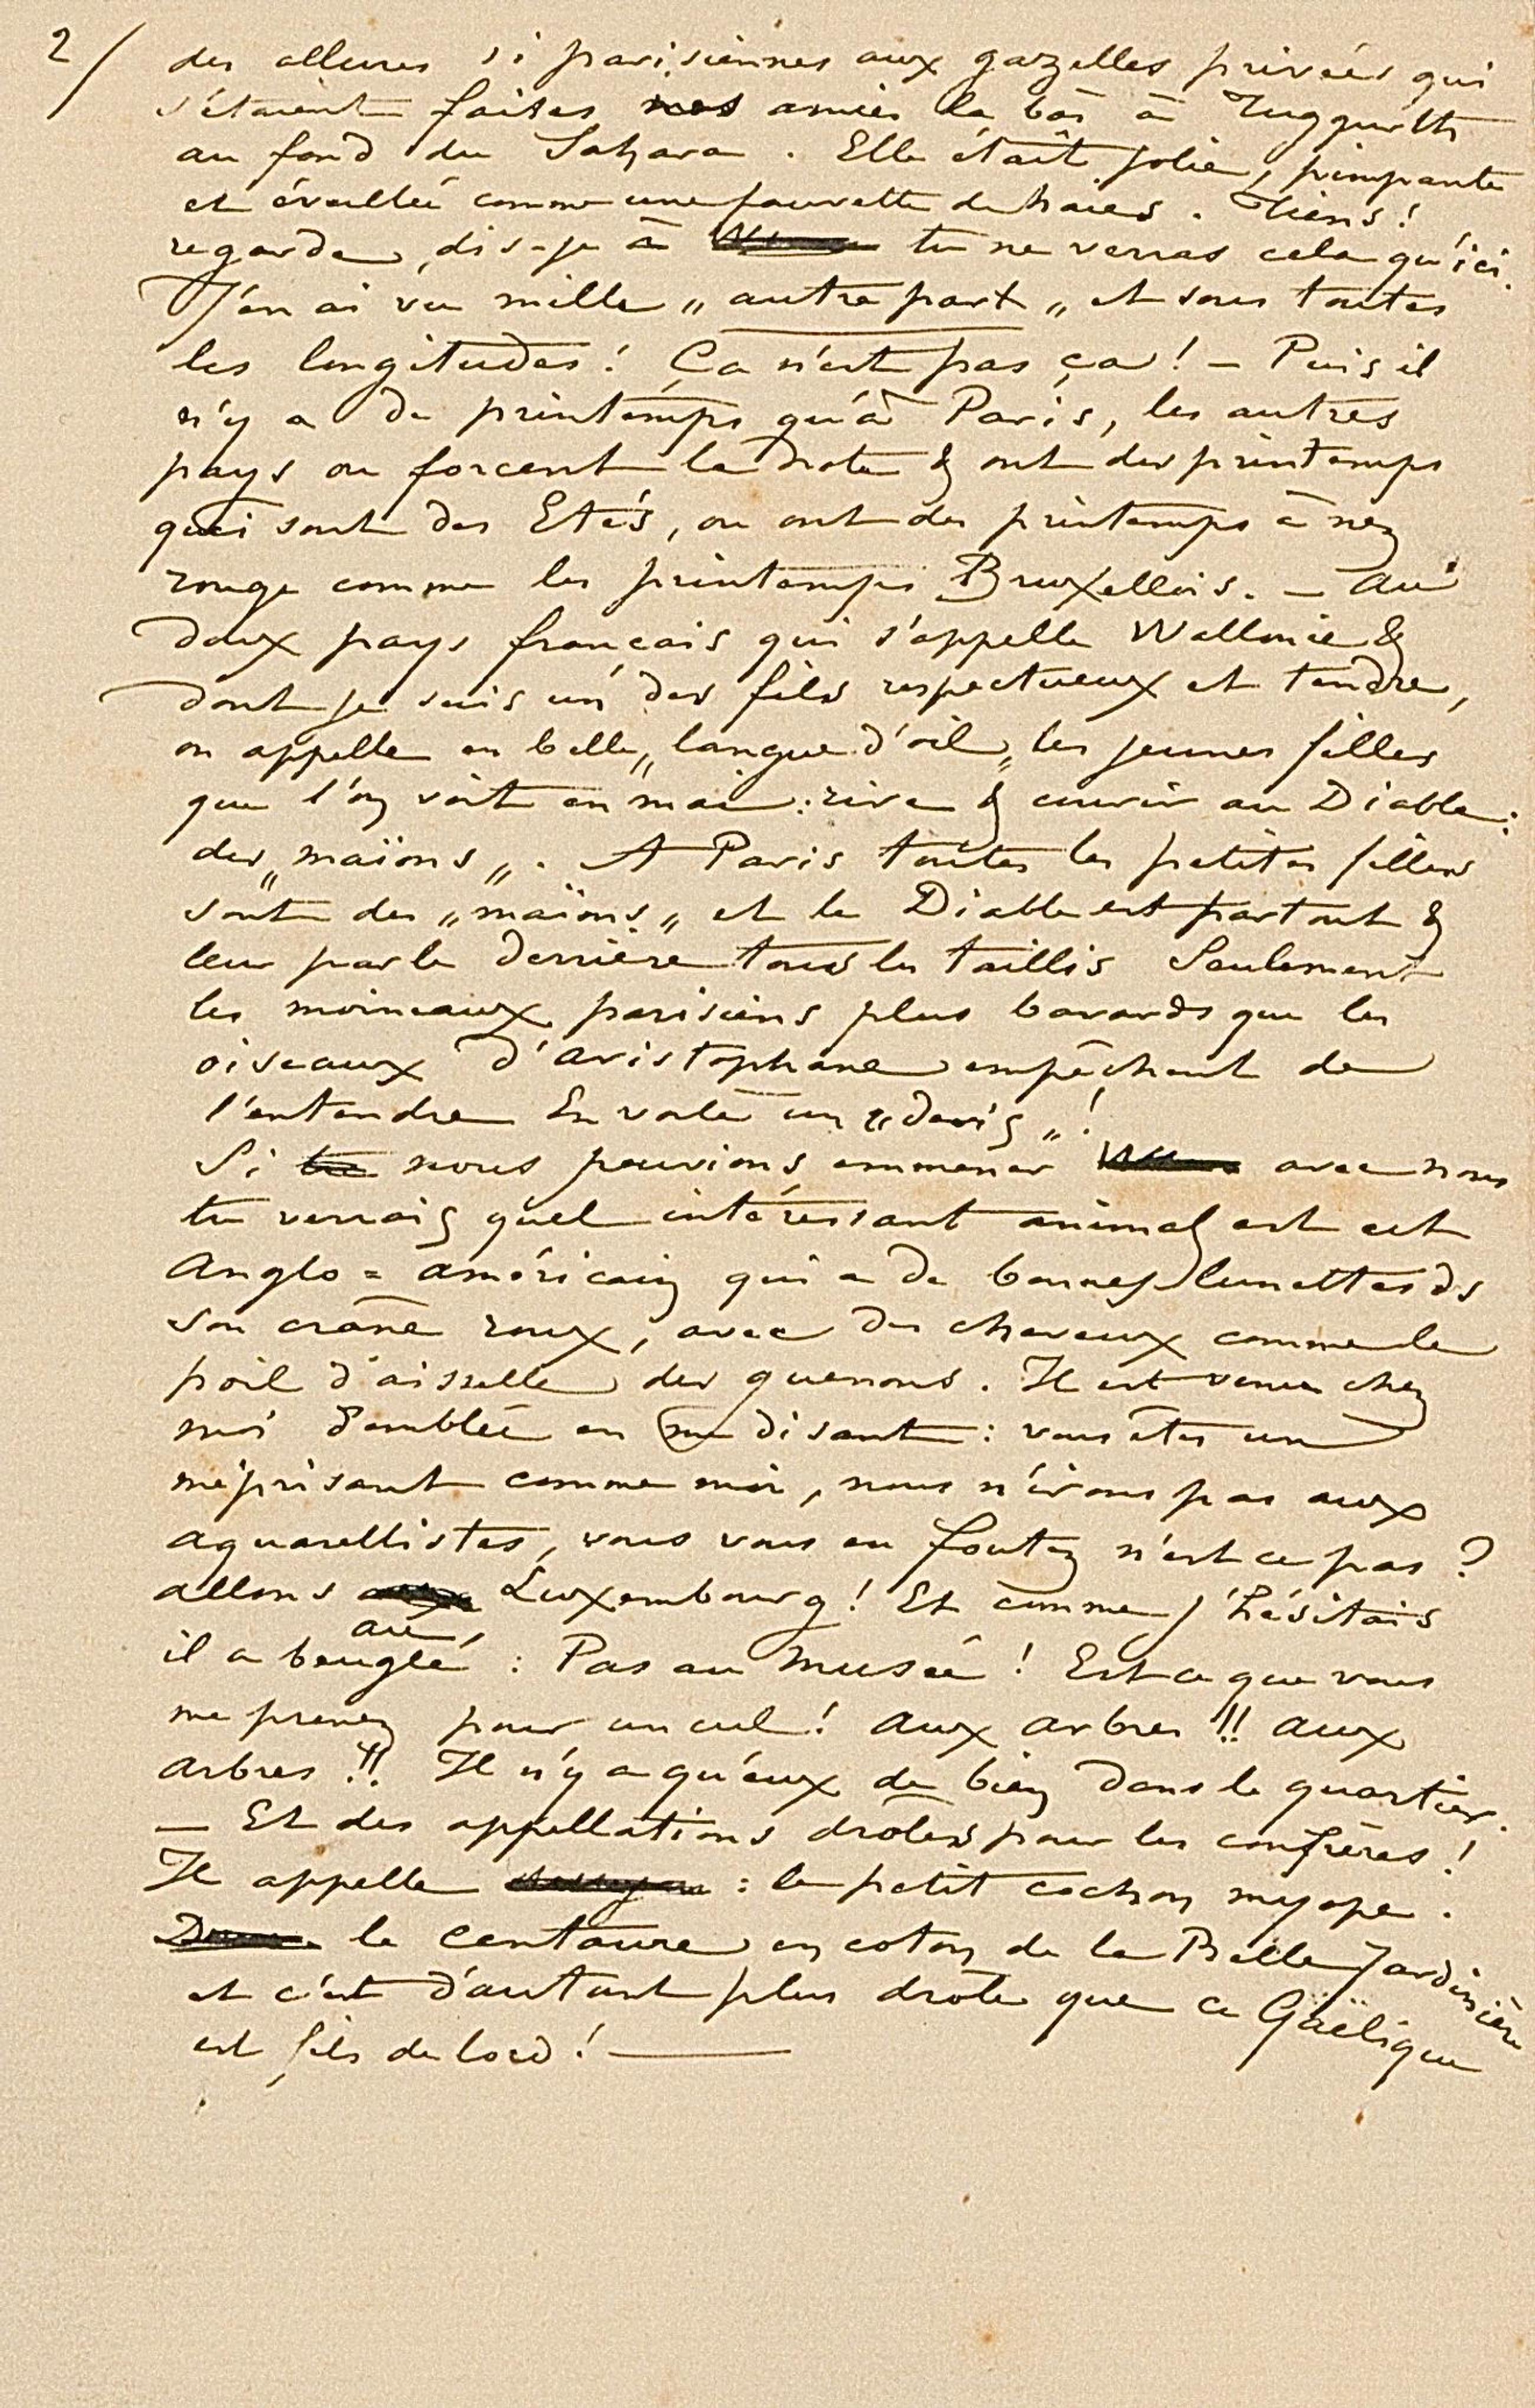 2/ des allures si parisiennes aux gazelles privées qui
s'étaient faites nos amies la bàs à Tuggurth
au fond du Sahara. Elle était jolie, pimpante
et éveillée comme une fauvette de haies. Tiens!
regarde, dis-je à tu ne verras cela qu'ici.
J'en ai vu mille „autre part„ et sous toutes
les longitudes! Ça n'est pas ça! — Puis il
n'y a de printemps qu'à Paris, les autres
pays ou forcent la note & ont des printemps
qui sont des Etés, ou ont des printemps à nez
rouge comme les printemps Bruxellois. — Au
doux pays français qui s'appelle Wallonie &
dont je suis un des fils respectueux et tendre,
on appelle en belle „langue d'oïl„ les jeunes filles
que l'on voit en mai: rire & courir au Diable:
des „maïons„. A Paris toutes les petites filles
sont des „maïons„ et le Diable est partout &
leur parle derrière tous les taillis Seulement
les moineaux parisiens plus bavards que les
oiseaux d'aristophane empêchent de
l'entendre En voilà un „devis„!
Si tu nous pouvions emmener avec nous
tu verrais quel intéressant animal est cet
Anglo=américain qui a de bonnes lunettes ds
son crâne roux, avec des cheveux comme le
poil d'aisselle des guenons. Il est venu chez
moi d'emblée en me disant: vous êtes un
méprisant comme moi, nous n'irons pas aux
aquarellistes, vous vous en foutez n'est ce pas?
allons au Luxembourg! Et comme j'hésitais
il a beuglé: Pas au Musée! Est ce que vous
me prenez pour un cul! Aux arbres!! aux
arbres!! Il n'y a qu'eux de bien dans le quartier.
— Et des appellations drôles pour les confrères!
Il appelle : le petit cochon myope.
le Centaure en coton de la Belle Jardinière
et c'est d'autant plus drôle que ce Gaëlique
est fils de lord! —